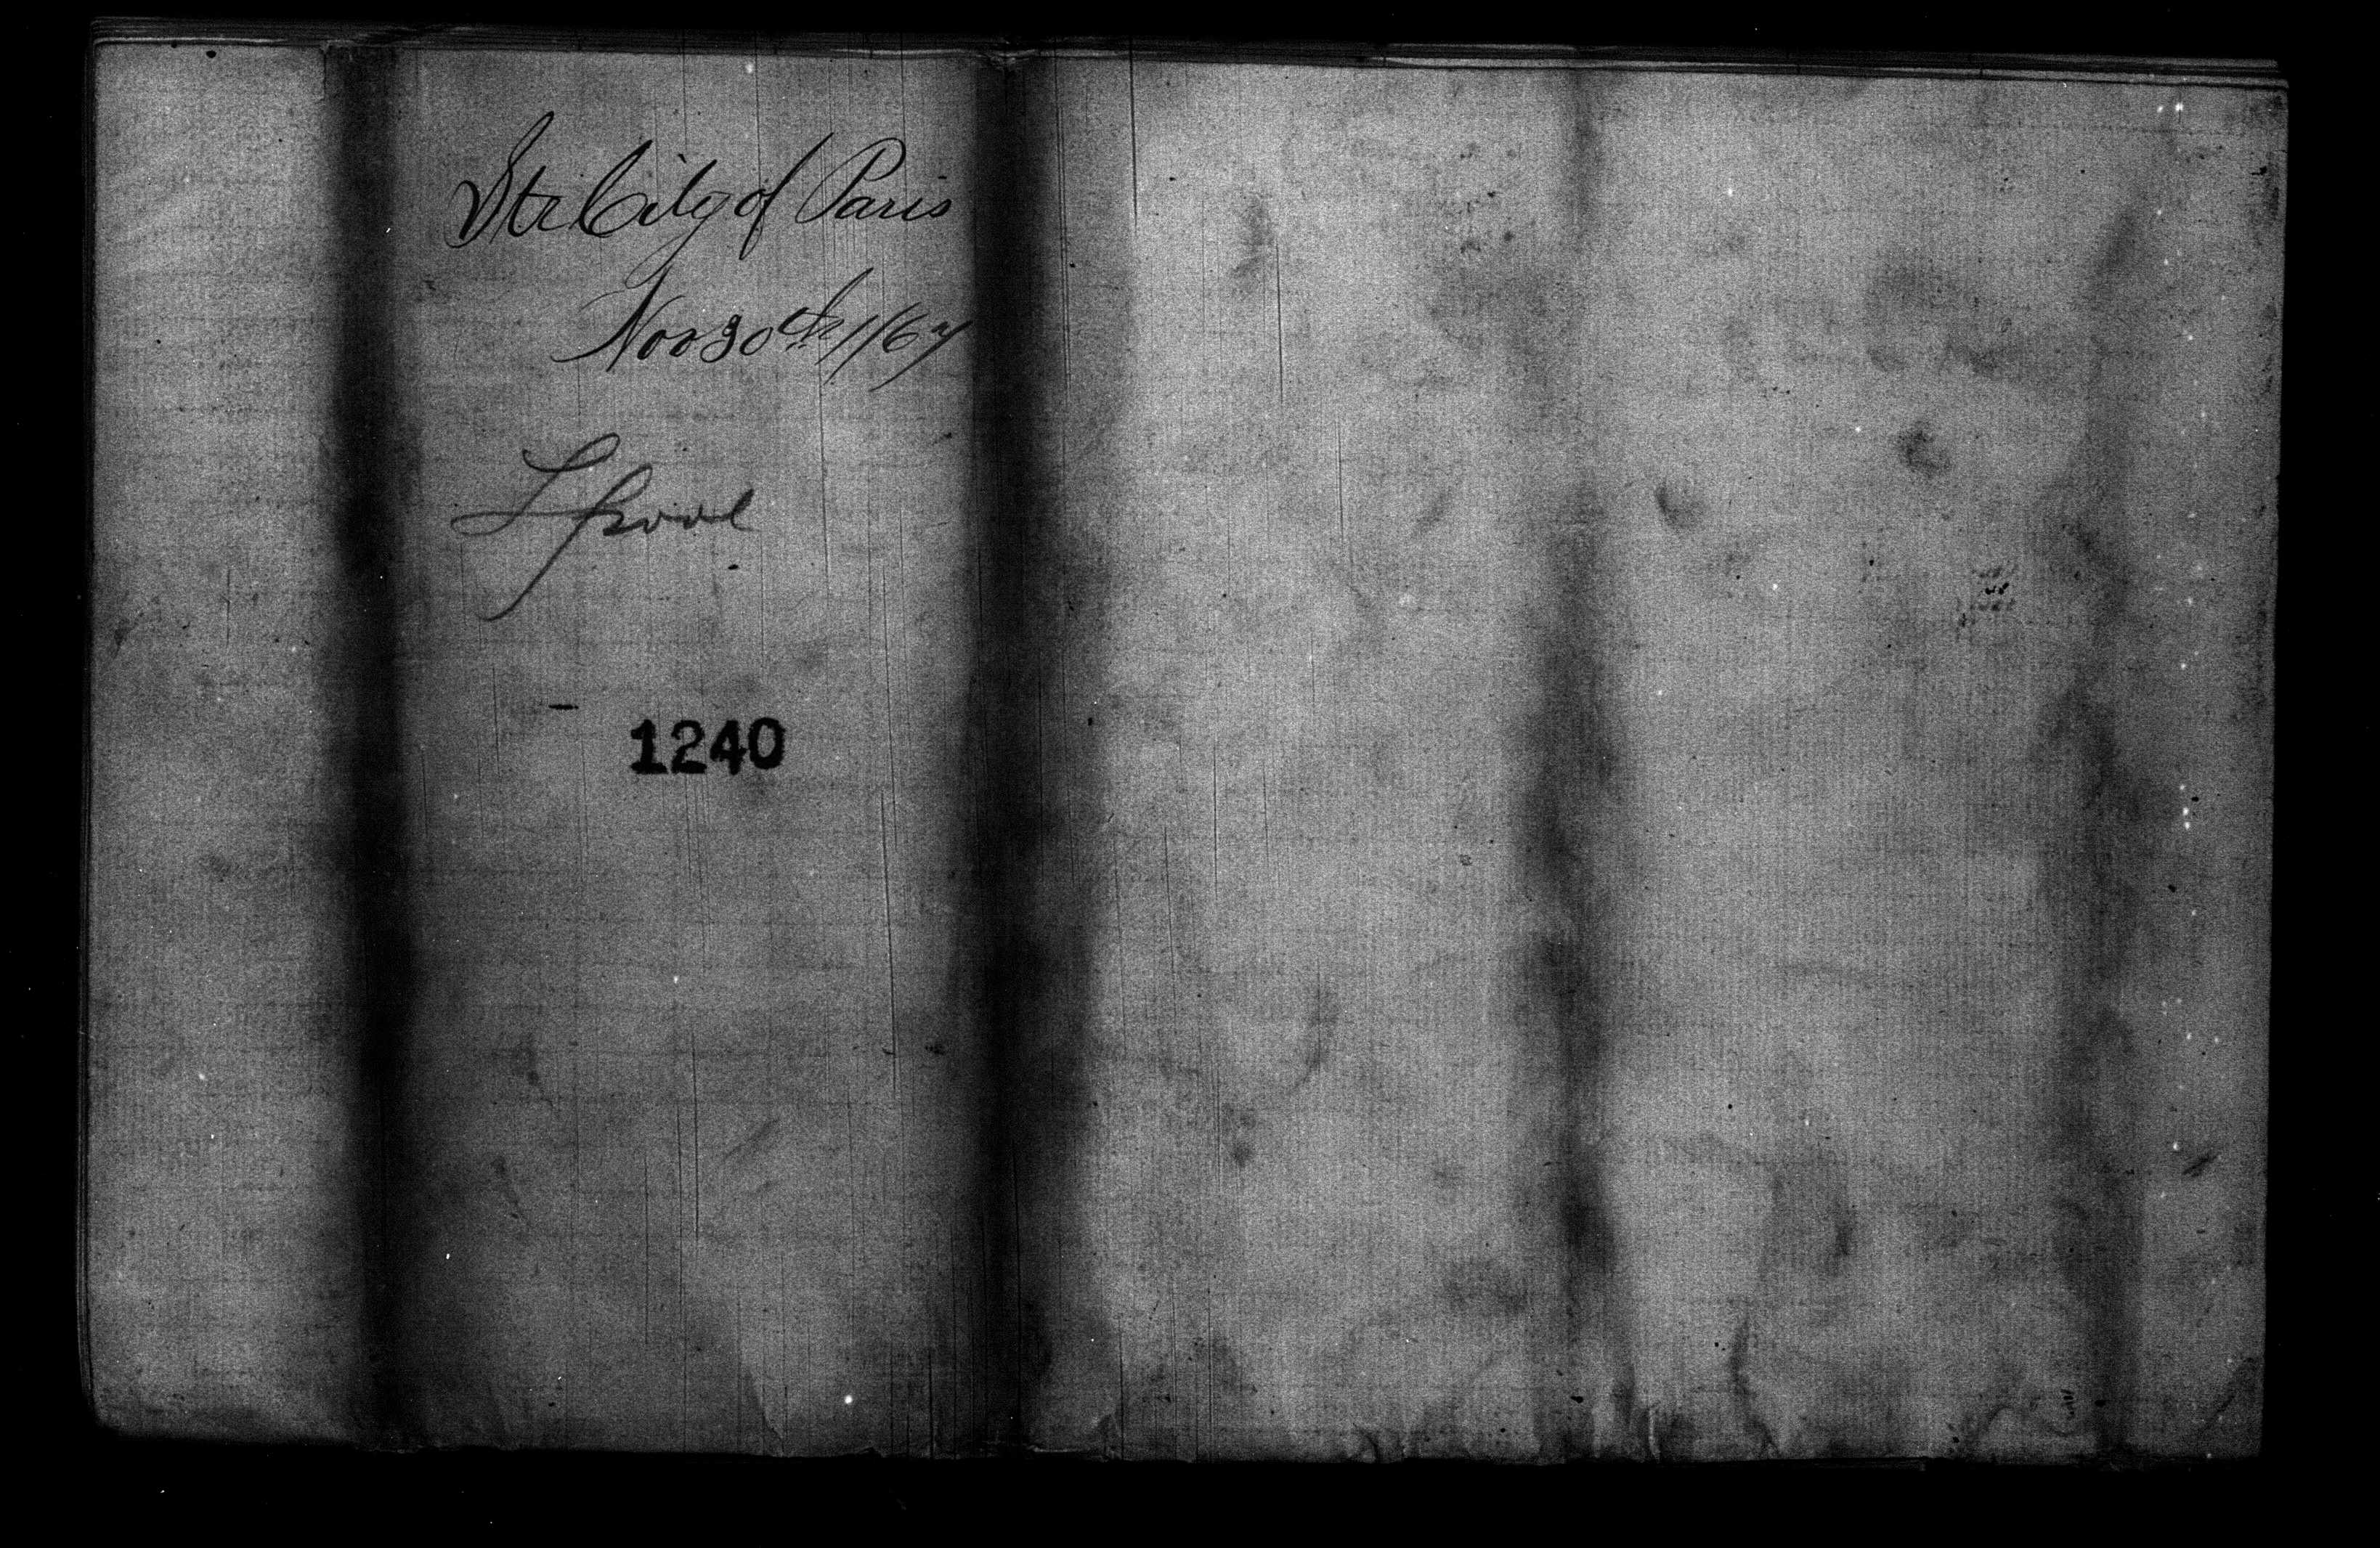 Str City of Paris
Nov 30th //67
Lpool
1240